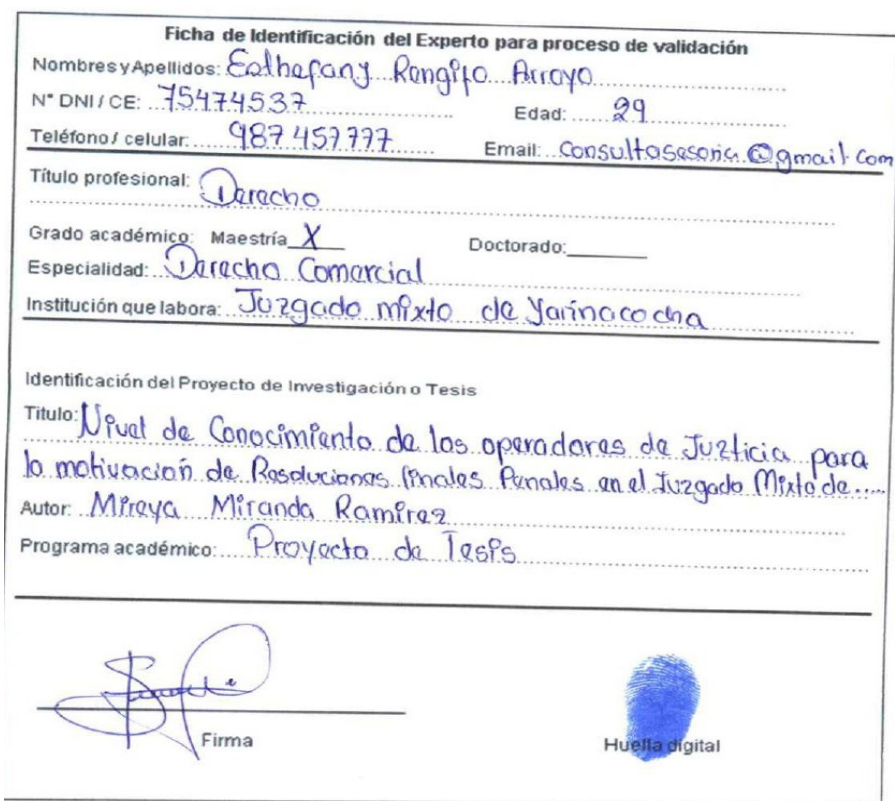 Ficha de Identificación del Experto para proceso de validación
Nombres y Apellidos: Esthefany Rengifo Arroyo
N° DNI / CE: 75474537 Edad: 29
Teléfono / celular: 987 457777 Email: Consultasesoria.@gmail.com
Título profesional: Derecho
Grado académico: Maestría X Doctorado:
Especialidad: Derecho Comercial
Institución que labora: Juzgado mixto de Yarinacocha
Identificación del Proyecto de Investigación o Tesis
Titulo: Nivel de Conocimiento de los operadores de Justicia para
la motivación de Resoluciones finales Penales en el Juzgado Mixto de.....
Autor: Mireya Miranda Ramirez
Programa académico: Proyecto de Tesis
Firma Huella digital